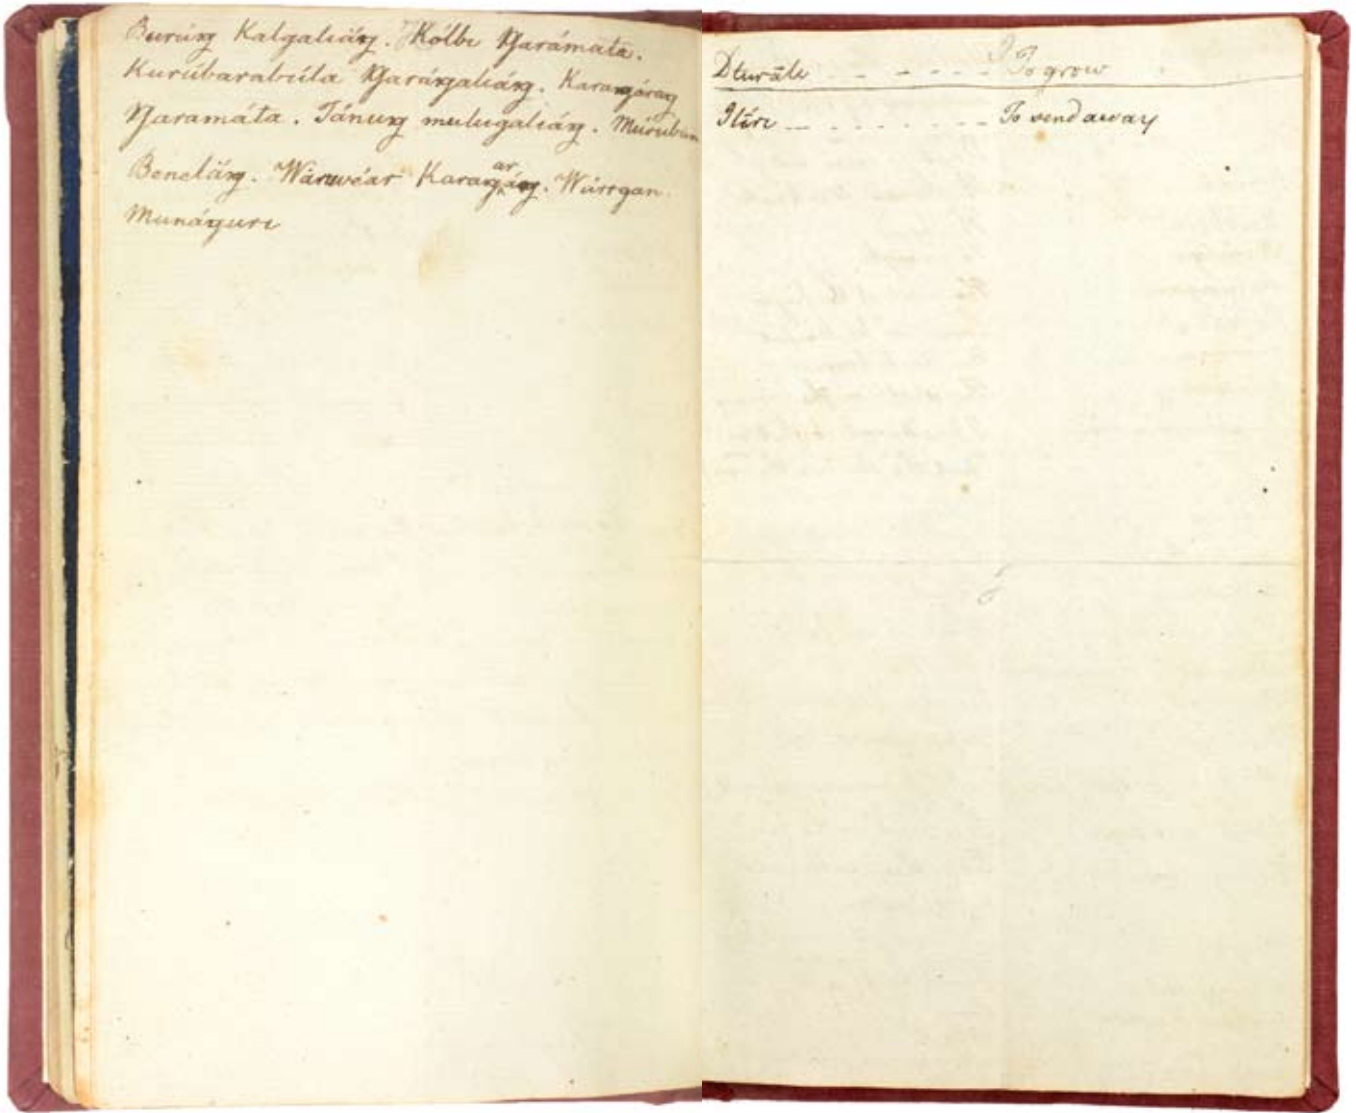 Burúŋ Kalgaliáŋ. Kólbi Ŋarámata.
Kurúbarabúla Ŋaráŋaliáŋ. Karaŋáraŋ
Ŋaramáta. Tánuŋ mulugaliáŋ. Múrubun
Beneláŋ. Wáruwéar Karaŋaráŋ. Wúrrgan.
Munáŋuri
Dturāli - - - - - - To grow
Ilíri - - - - - - - - To send away